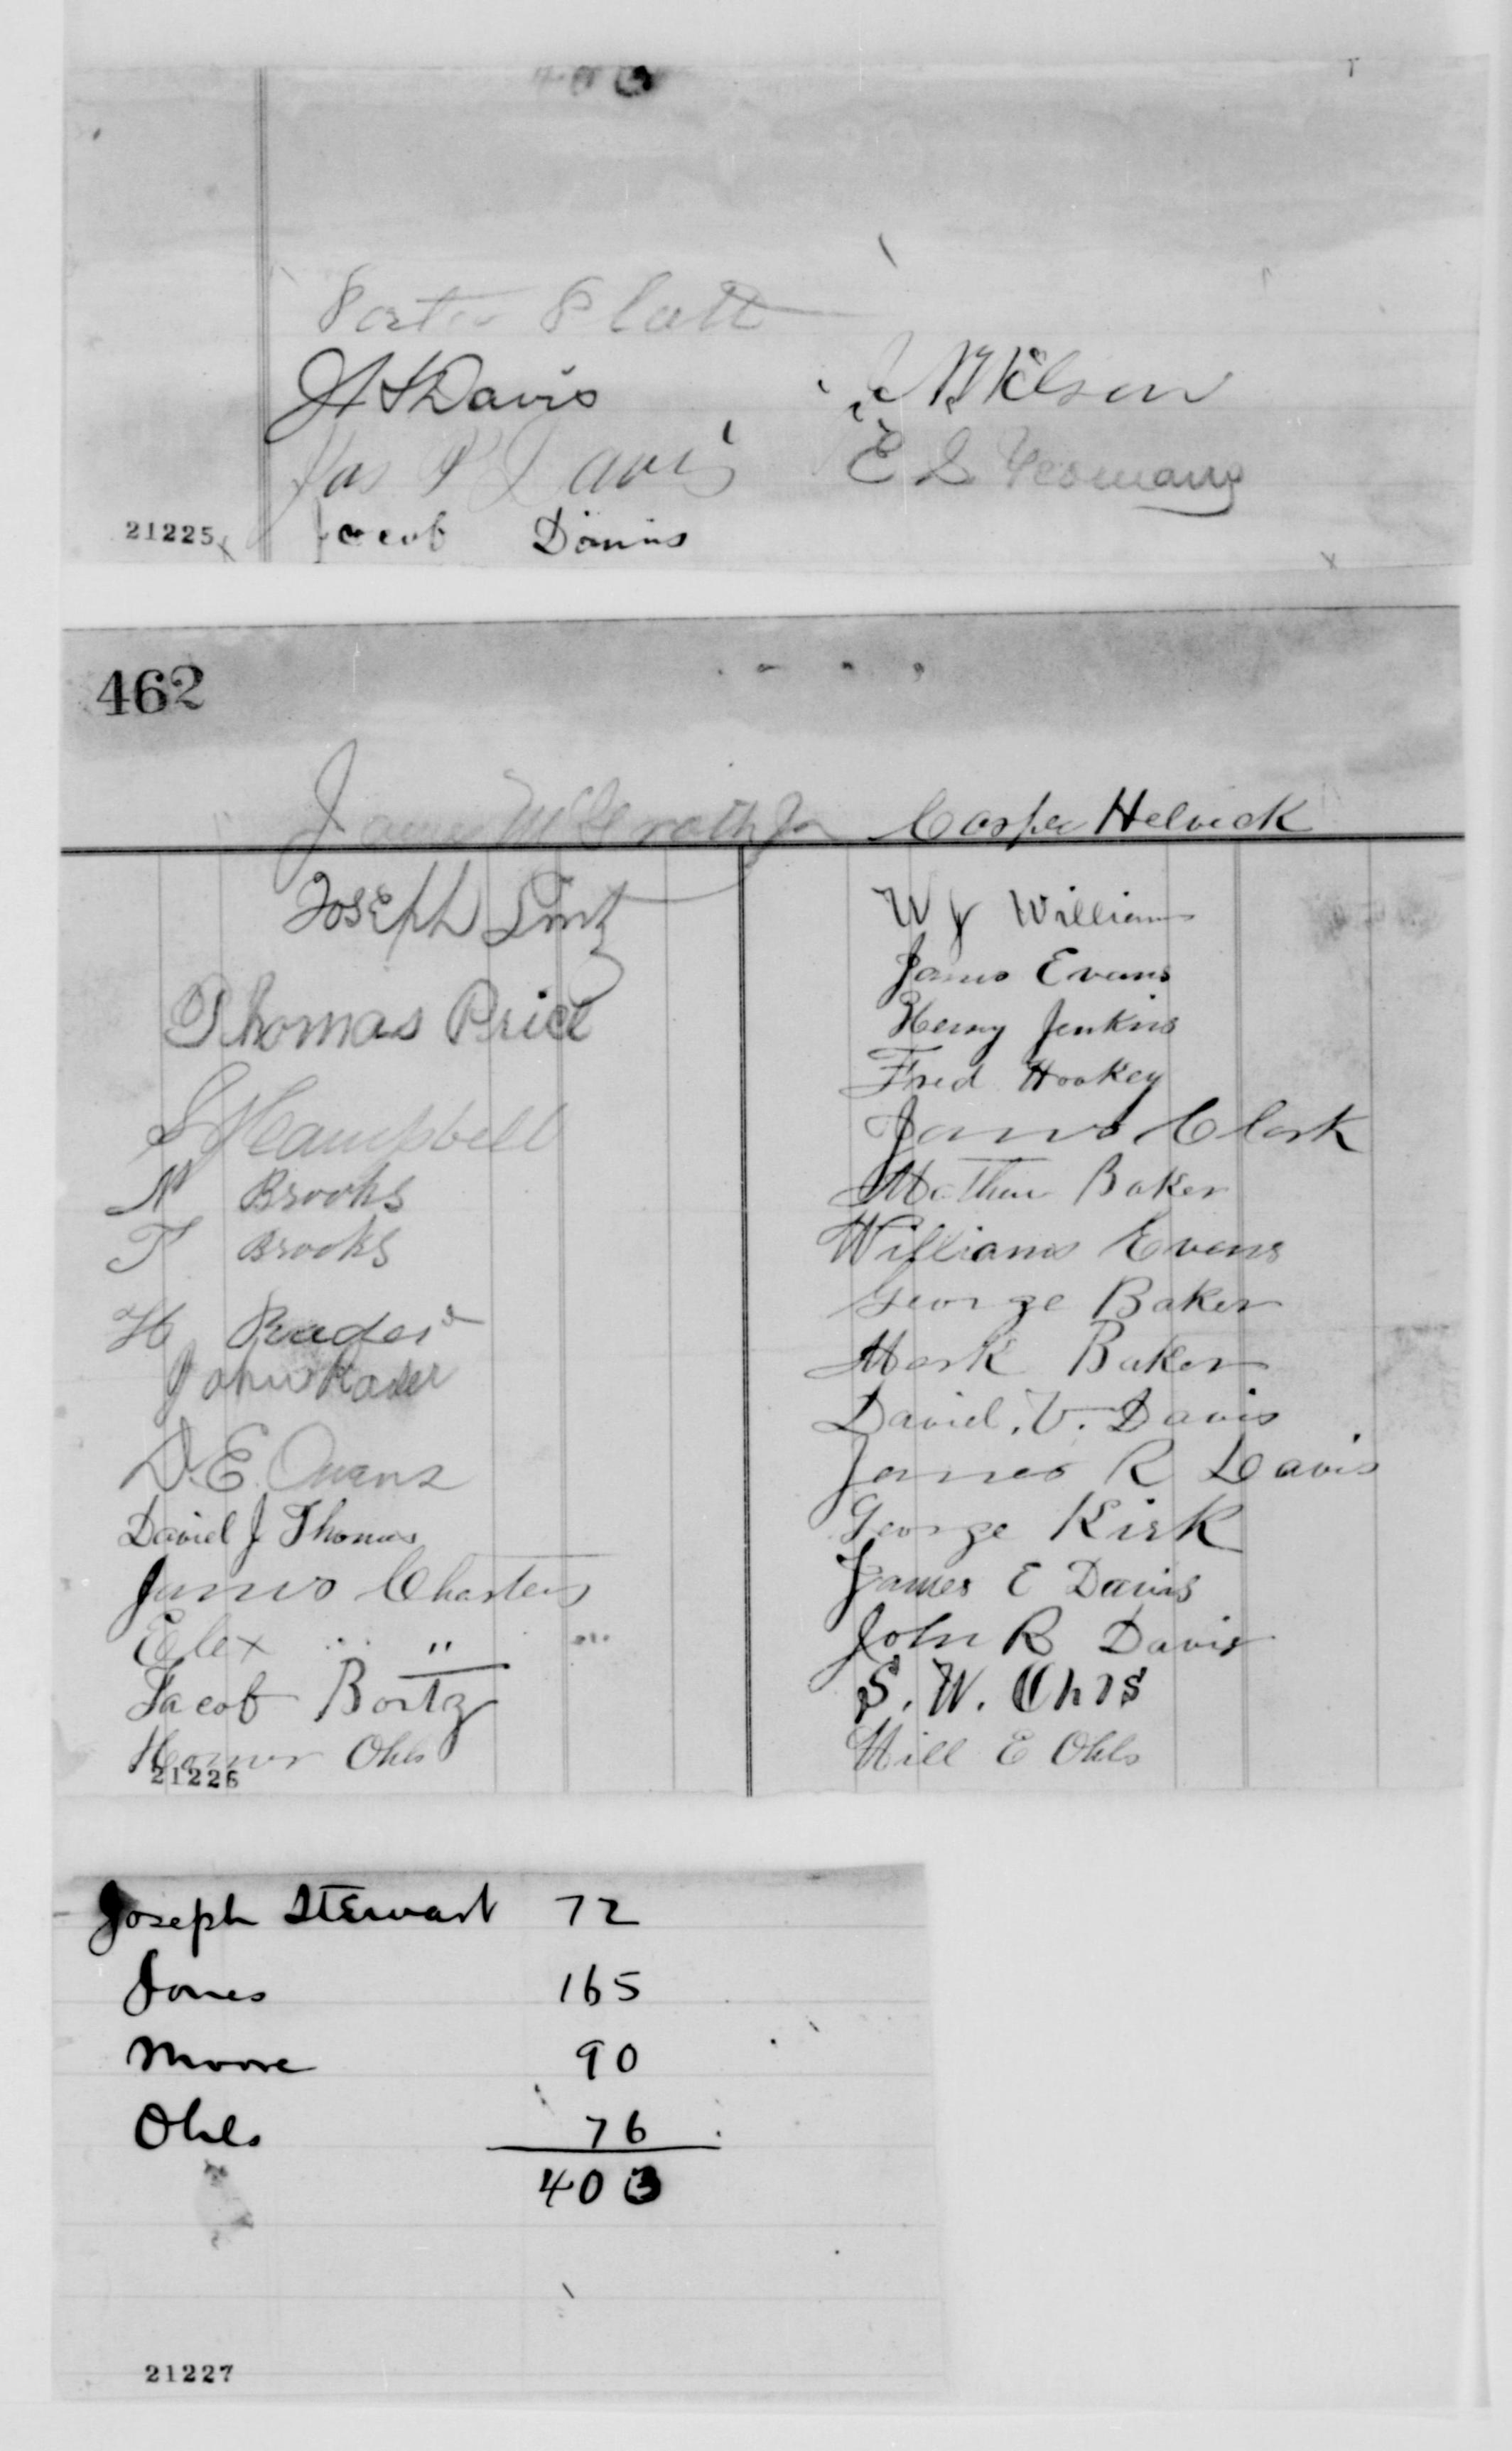 Porter Platt
J A S Davis
J N Wilson
Jas P Davis
E S Yeomans
21225
Jacob Danius
462
James McGrath Jr
Casper Helwick
Joseph Lintz
Thomas Price
Campbell
N Brooks
T Brooks
H Rader
John Rader
D. E. Owens
David J Thomas
James Charters
Elex " "
Jacob Bortz
Homer Ohls
21226
W J Williams
James Evans
Henry Jenkins
Fred Hookey
James Clark
Mathew Baker
Williams Evans
George Baker
Mark Baker
David. V. Davis
James R Davis
George Kirk
James E Davis
John R Davis
S. W. Ohls
Will E Ohls
Joseph Stewart 72
Jones 165
Moore 90
Ohls 76
403
21227